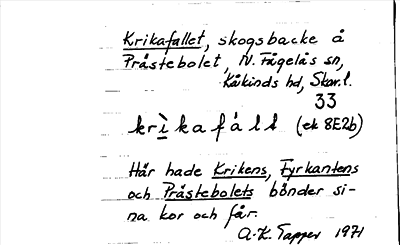 Krikafallet, skogsbacke å
Pråstebolet, N. Fågelås sn,
Kåkinds hd, Skar.l.
33
krìkafált (ek 8E2b)
Hår hade Krikens, Fyrkantens
och Pråstebolets bönder si-
na kor och får.
A.K. Tapper 1971